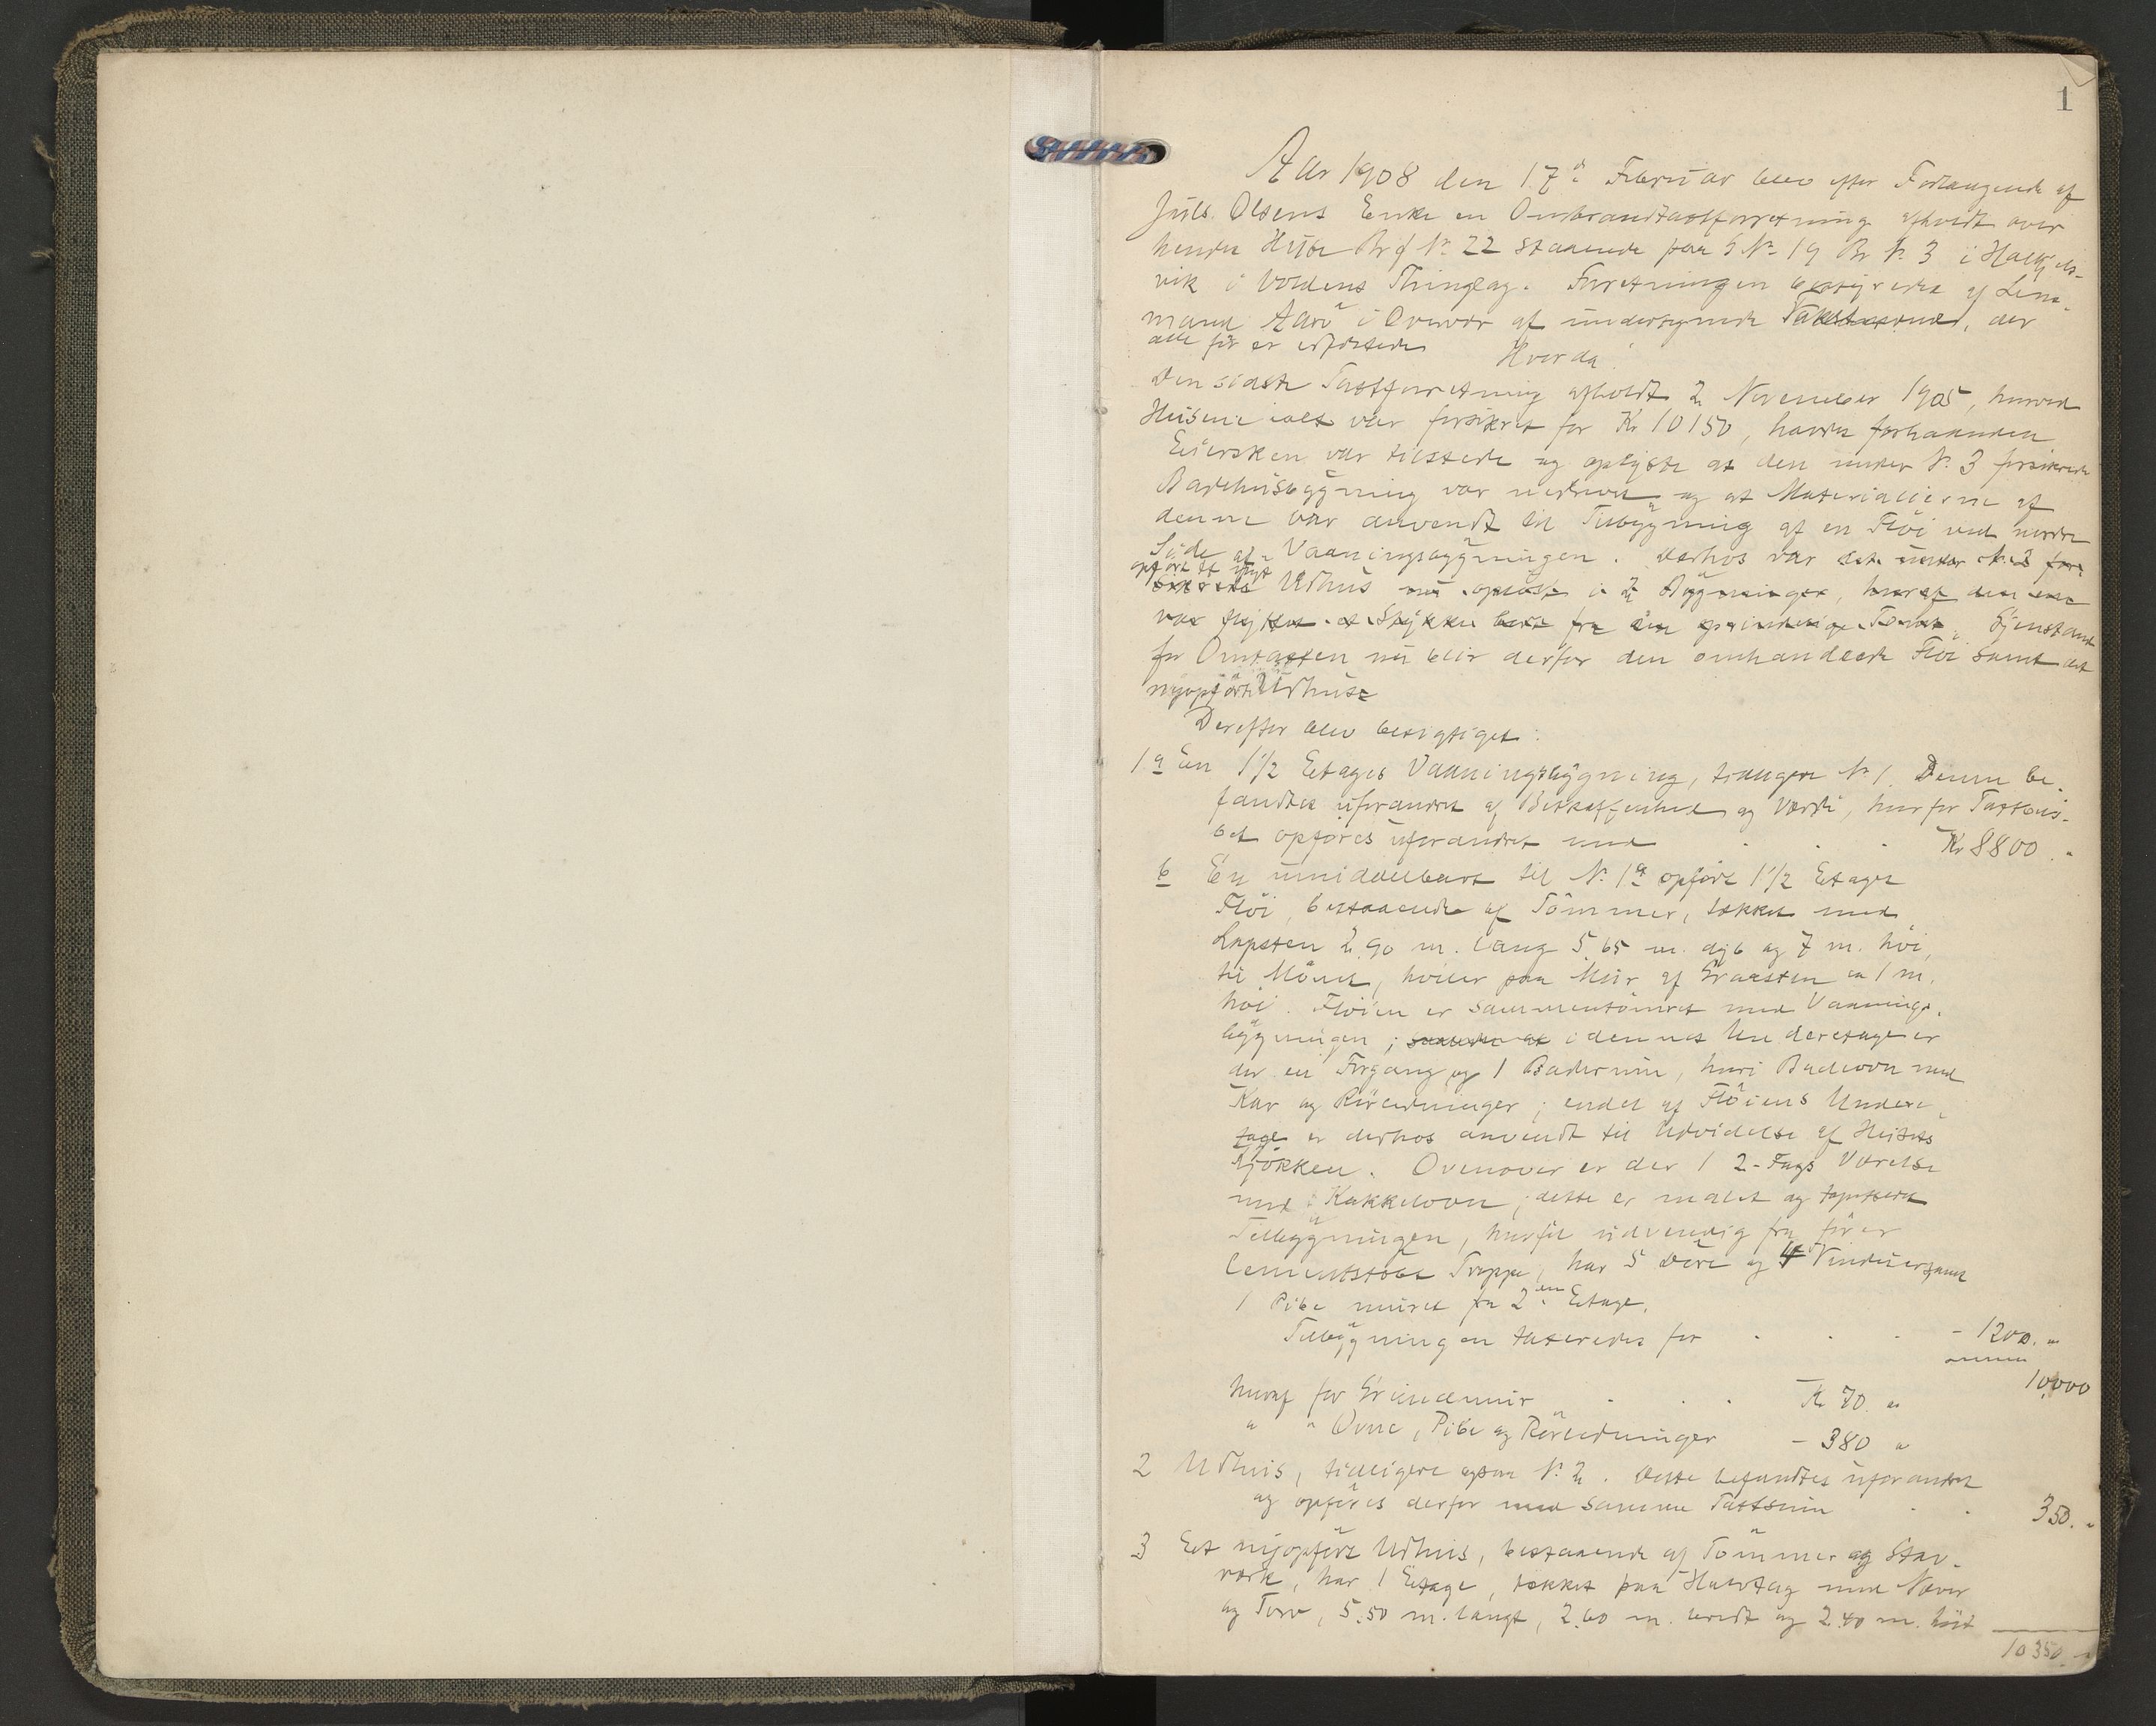 1
Aar 1908 den 17de Februar blev efter Forlangende af
Juls. Olsens Enke en Ombrandtaxtforretning afholdt over
hendes Huse Brf No 22 staaende paa G No 19 Br No 3 i Halkjels-
vik i Voldens Thinglag. Forretningen bestyredes af Lens-
mand Aarö i Overvær af undertegnede Takstmænd, der
alle før er edfæstede
Hvorda!
Den sidste Taxtforretning afholdt 2 November 1905, hvorved
Husene ialt var forsikret for Kr 10150, havdes forhaanden
Eiersken var tilstede og oplyste at den under No 3 forsikrede
Badehusbygning var nedrevet og at Materialierne af
denne var anvendt til Tilbygning af en Flöi ved nordre
Side af Vaaningsbygningen. Derhos var det under No 2 for-
opført et nyt
sikrede Udhus nu opsat i 2 Bygninger, hvoraf den ene
var flyttet et Stykke bort fra den oprindelige Tomt. Gjenstand
for Omtaxten nu blir derfor den omhandlede Flöi samt det
nyopførte Udhus
Derefter blev besigtiget:
1 a En 1 1/2 Etages Vaaningsbygning, tidligere No 1. Denne be-
fandtes uforandret af Beskaffenhed og Værdi, hvorfor Taxtbelö-
bet opføres uforandret med . . . Kr 8800. "
b En umiddelbart til No 1a opført 1 1/2 Etages
Flöi, bestaaende af Tømmer, tækket med
Lapsten 2,90 m. lang 5,65 m. dyb og 7 m. höi,
til Mønet, hviler paa Mur af Graasten ca 1 m.
höi. Flöien er sammentømret med Vaanings-
bygningen; saaledes at i dennes Underetage er
der en Forgang og 1 Baderum, hvori Badeovn med
Kar og Rörledninger; endel af Flöiens Undere-
tage er derhos anvendt til Udvidelse af Husets
Kjökken. Ovenover er der 1 2-Fags Værelse
med Kakkelovn; dette er malet og tapetseret
Tilbygningen, hvortil udvendig fra fører
Cementstøbt Trappe, har 5 Døre og 4 Vinduer samt
1 Pibe muret fra 2en Etage.
Tilbygningen taxeredes for . . . - 1200. "
10,000
hvoraf for Grundmur . . . Kr 70. "
" " Ovne, Pibe og Rörledninger - 380 "
2 Udhus, tidligere ogsaa No 2. Dette befandtes uforandret
og opføres derfor med samme Taxtsum . . 350. "
3 Et nyopført Udhus, bestaaende af Tömmer og Stav-
værk, har 1 Etage, tækket paa Halvtag med Næver
og Torv, 5.50 m. langt, 2.60 m. bredt og 2.40 m. höit
10350. "